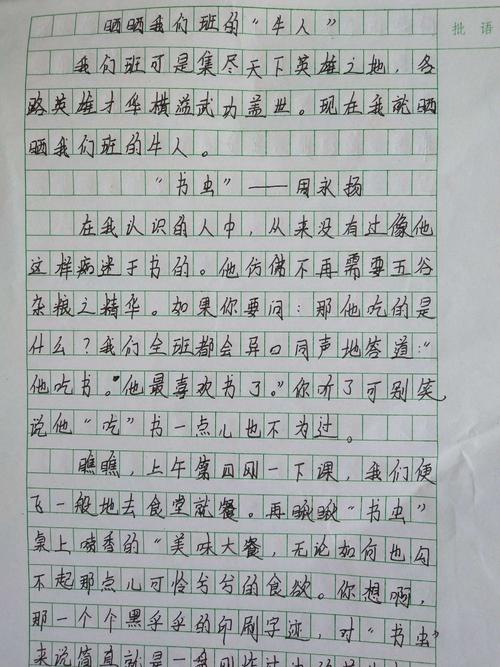 批语
晒晒我们班的“牛人”
我们班可是集尽天下英雄之地，各
路英雄才华横溢武功盖世。现在我就晒
晒我们班的牛人。
“书虫”——周永扬
在我认识的人中，从来没有过像他
这样痴迷于书的。他仿佛不再需要五谷
杂粮之精华。如果你要问：那他吃的是
什么？我们全班都会异口同声地答道：“
他吃书。”他最喜欢书了。”你听了可别笑，
说他“吃”书一点儿也不为过。
瞧瞧，上午第四刚一下课，我们便
飞一般地去食堂就餐。再瞅瞅“书虫”
桌上喷香的“美味大餐，无论如何也勾
不起那点儿可怜兮兮的食欲。你想啊，
那一个个黑乎乎的印刷字迹，对“书虫”
来说简直就是一